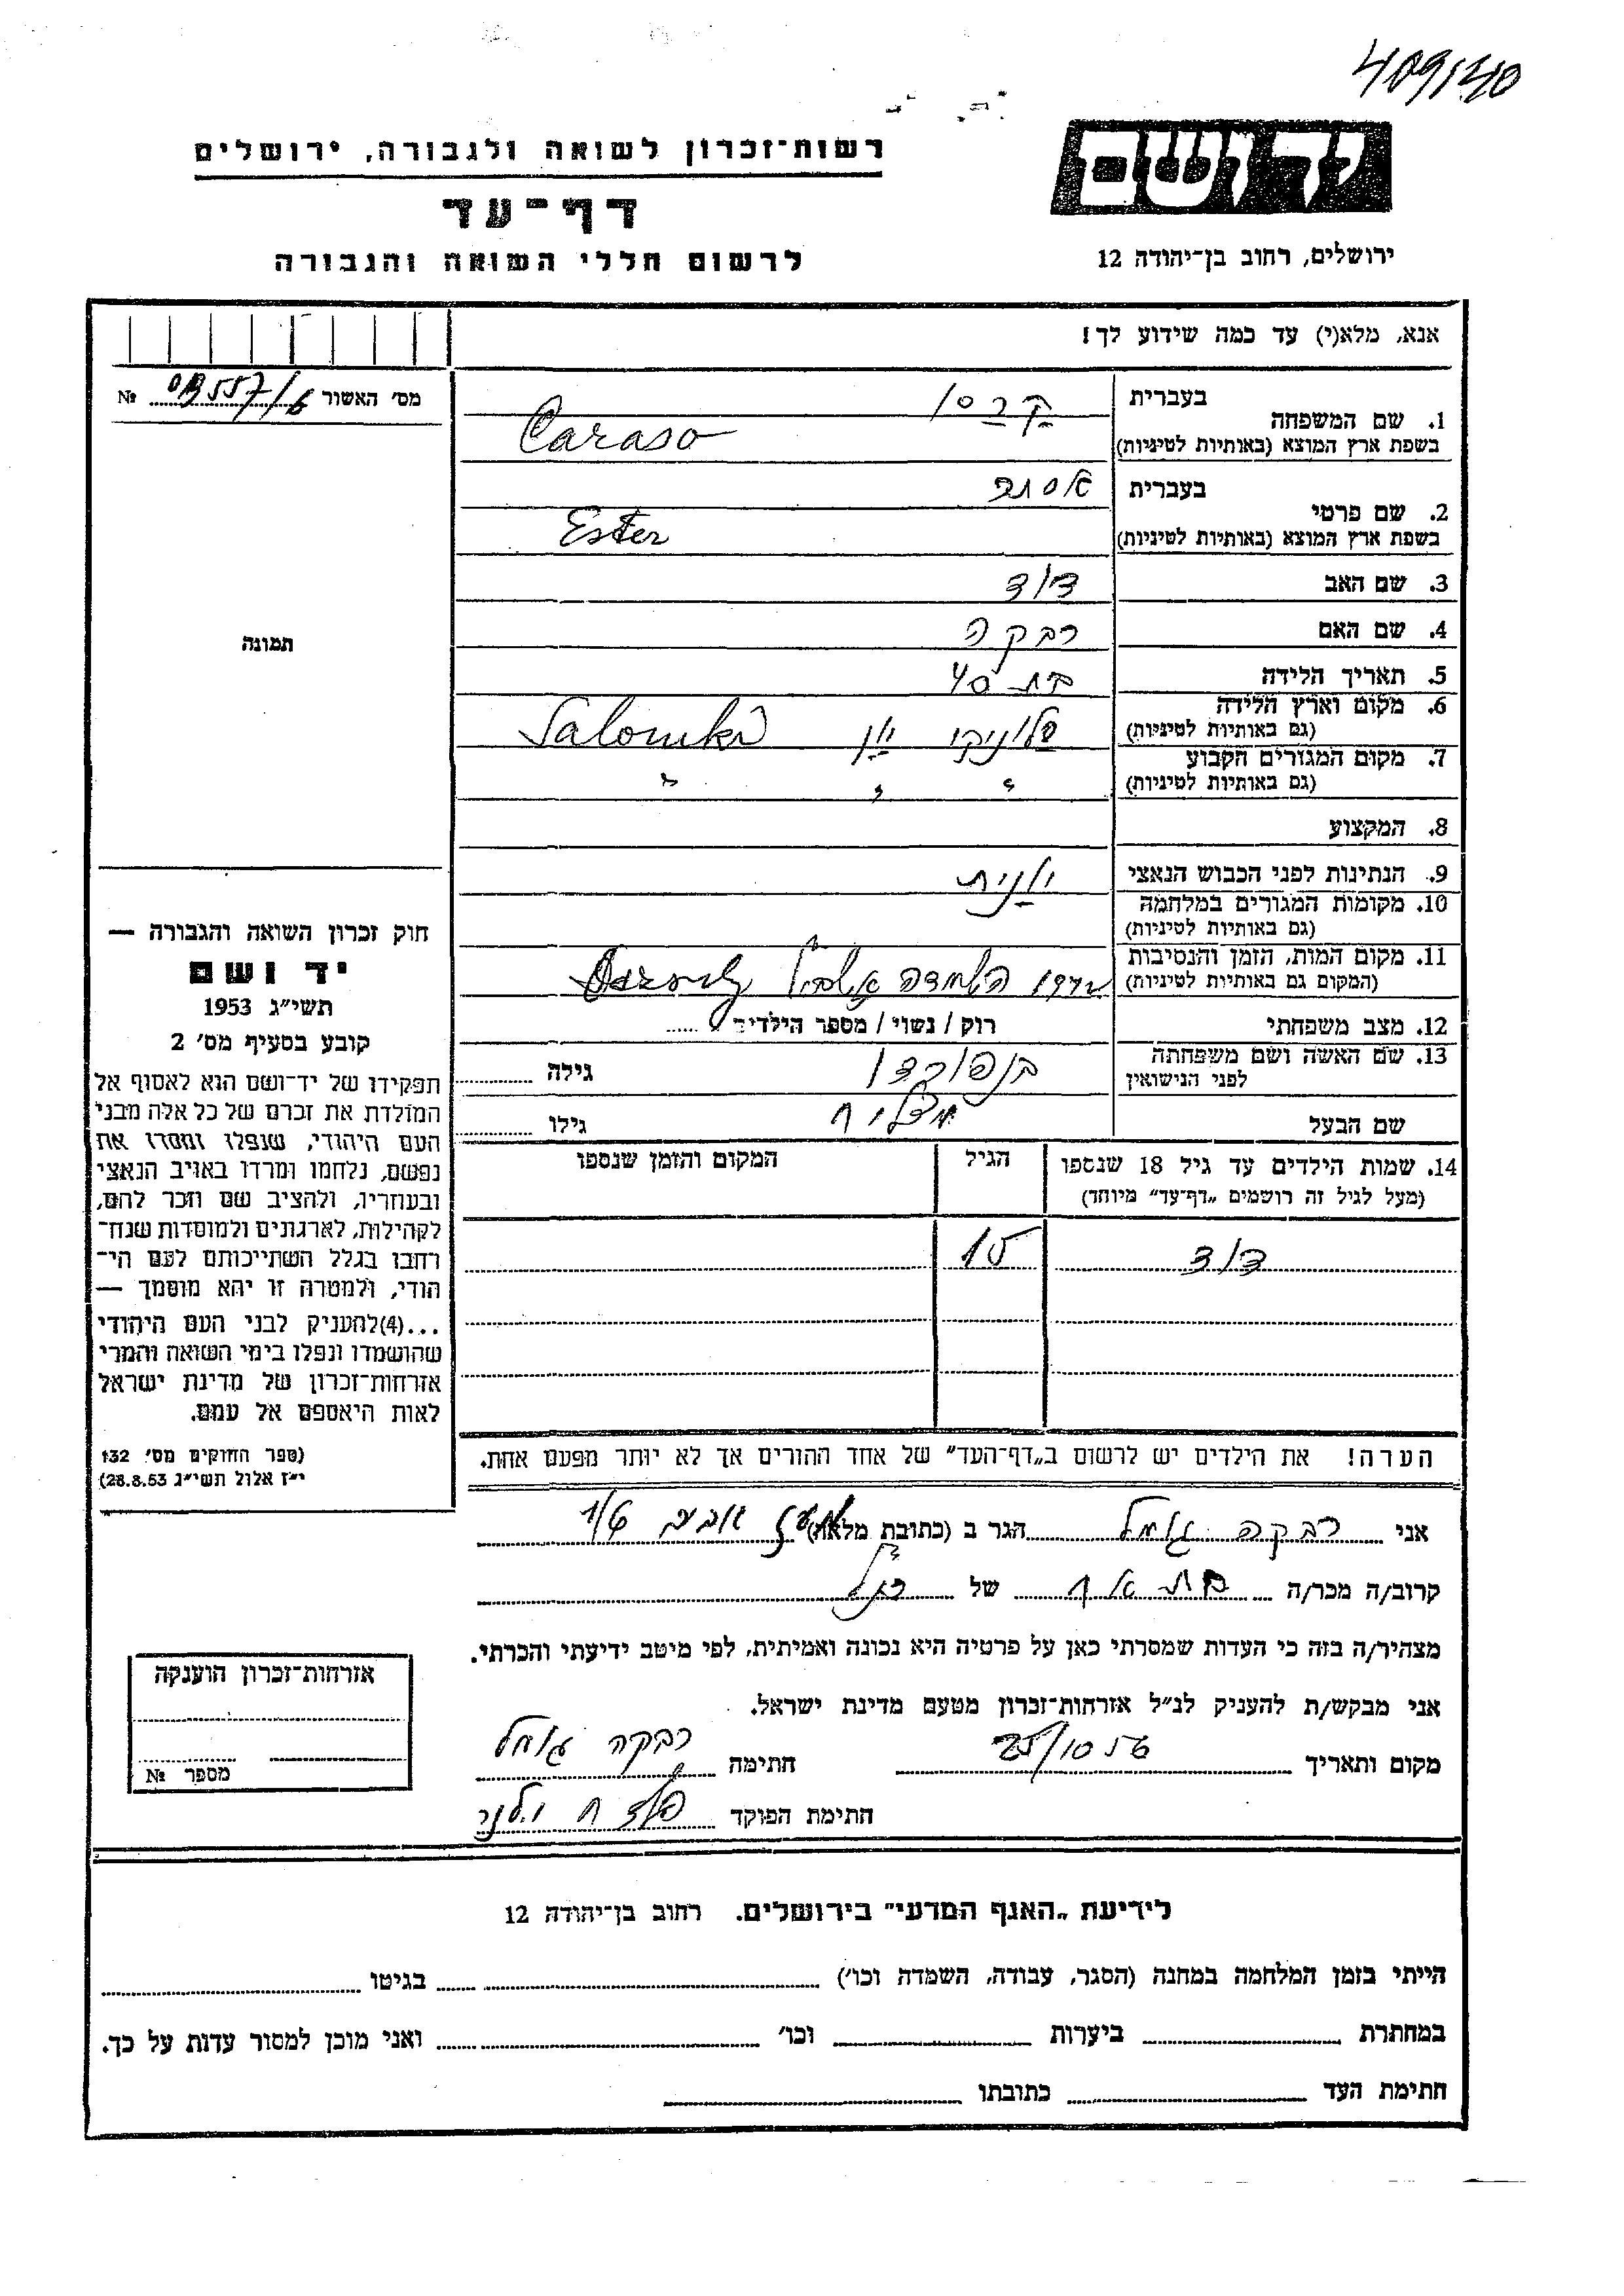 409/40
רשות־זכרון לשואה ולגבורה, ירושלים
יד ושם
דף־עד
לרשום חללי השואה והגבורה
ירושלים, רחוב בן־יהודה 12
אנא, מלא(י) עד כמה שידוע לך!
מס׳ האשור №
1. שם המשפחה
בעברית
קרסו
בשפת ארץ המוצא (באותיות לטיניות)
Caraso
2. שם פרטי
בעברית
אסתר
בשפת ארץ המוצא (באותיות לטיניות)
Ester
3. שם האב
דוד
4. שם האם
רבקה
5. תאריך הלידה
בת 40
6. מקום וארץ הלידה
(גם באותיות לטיניות)
סלוניקי יון Saloniki
7. מקום המגורים הקבוע
(גם באותיות לטיניות)
" " "
8. המקצוע
9. הנתינות לפני הכבוש הנאצי
יונית
10. מקומות המגורים במלחמה
(גם באותיות לטיניות)
11. מקום המות, הזמן והנסיבות
(המקום גם באותיות לטיניות)
השמדה
12. מצב משפחתי
רוק / נשוי / מספר הילדים
13. שם האשה ושם משפחתה
לפני הנישואין
גילה
שם הבעל
מצליח
גילו
14. שמות הילדים עד גיל 18 שנספו
(מעל לגיל זה רושמים „דף־עד" מיוחד)
הגיל
המקום והזמן שנספו
דוד 15
הערה! את הילדים יש לרשום ב„דף־העד" של אחד ההורים אך לא יותר מפעם אחת.
תמונה
חוק זכרון השואה והגבורה —
יד ושם
תשי״ג 1953
קובע בסעיף מס׳ 2
תפקידו של יד־ושם הוא לאסוף אל
המולדת את זכרם של כל אלה מבני
העם היהודי, שנפלו ומסרו את
נפשם, נלחמו ומרדו באויב הנאצי
ובעוזריו, ולהציב שם וזכר להם,
לקהילות, לארגונים ולמוסדות שנח־
רחבו בגלל השתייכותם לעם הי־
הודי, ולמטרה זו יהא מוסמך —
...(4)להעניק לבני העם היהודי
שהושמדו ונפלו בימי השואה והמרי
אזרחות־זכרון של מדינת ישראל
לאות היאספם אל עמם.
(ספר החוקים מס׳ 132
י״ז אלול תשי״ג 28.8.53)
אני רבקה הגר ב (כתובת מלאה)
קרוב/ה מכר/ה בת אח של הנ״ל
מצהיר/ה בזה כי העדות שמסרתי כאן על פרטיה היא נכונה ואמיתית, לפי מיטב ידיעתי והכרתי.
אני מבקש/ת להעניק לנ״ל אזרחות־זכרון מטעם מדינת ישראל.
מקום ותאריך 25/10 56 חתימה רבקה
חתימת הפוקד
אזרחות־זכרון הוענקה
מספר №
לידיעת „האגף המדעי" בירושלים. רחוב בן־יהודה 12
הייתי בזמן המלחמה במחנה (הסגר, עבודה, השמדה וכו׳) בגיטו
במחתרת ביערות וכו׳ ואני מוכן למסור עדות על כך.
חתימת העד כתובתו